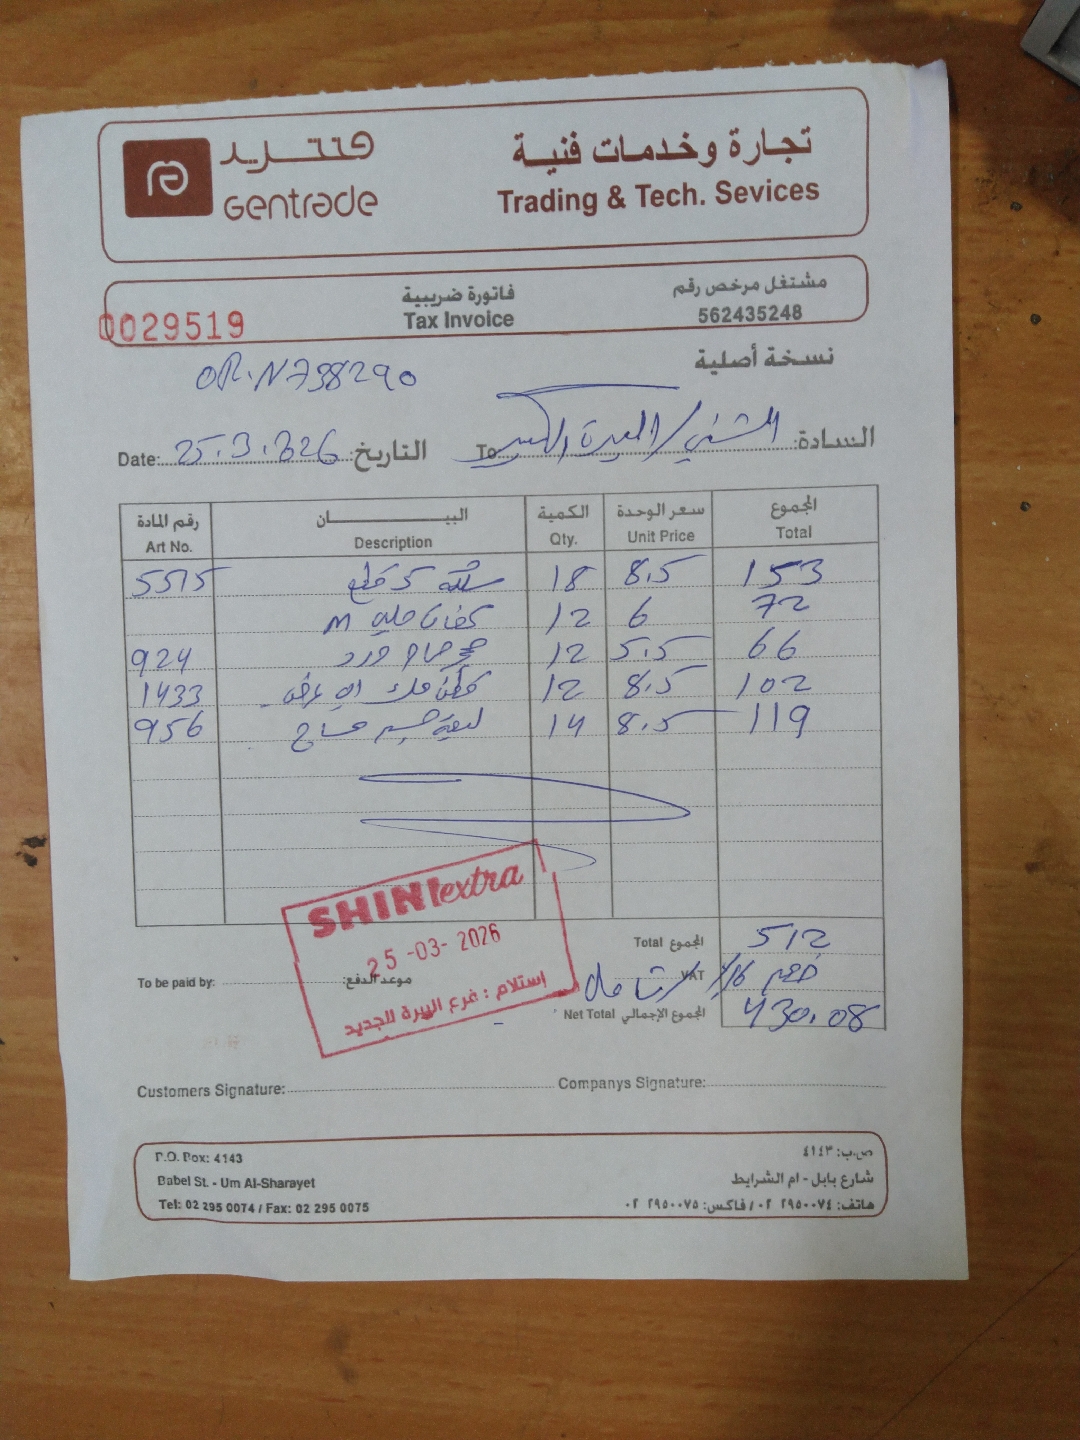 جنتريد
Gentrade
تجارة وخدمات فنية
Trading & Tech. Sevices
0029519
فاتورة ضريبية
Tax Invoice
مشتغل مرخص رقم
562435248
نسخة أصلية
OR.N738290
Date: 25.3.2026 التاريخ:
To الشني / البيرة السادة:
رقم المادة البيـــــــان الكمية سعر الوحدة المجموع
Art No. Description Qty. Unit Price Total
5515 5 قطع 18 8.5 153
كفات M 12 6 72
924 حمام ورد 12 5.5 66
1433 قطن 12 8.5 102
956 ليفة جسم مساج 14 8.5 119
SHINI extra
25-03-2026
استلام : فرع البيرة الجديد
Total المجموع 512
VAT خصم 16% / شامل
Net Total المجموع الإجمالي 430.08
To be paid by: موعد الدفع:
Customers Signature: Companys Signature:
P.O. Box: 4143
Babel St. - Um Al-Sharayet
Tel: 02 295 0074 / Fax: 02 295 0075
ص.ب: ٤١٤٣
شارع بابل - ام الشرايط
هاتف: ٢٩٥٠٠٧٤ ٠٢ / فاكس: ٢٩٥٠٠٧٥ ٠٢